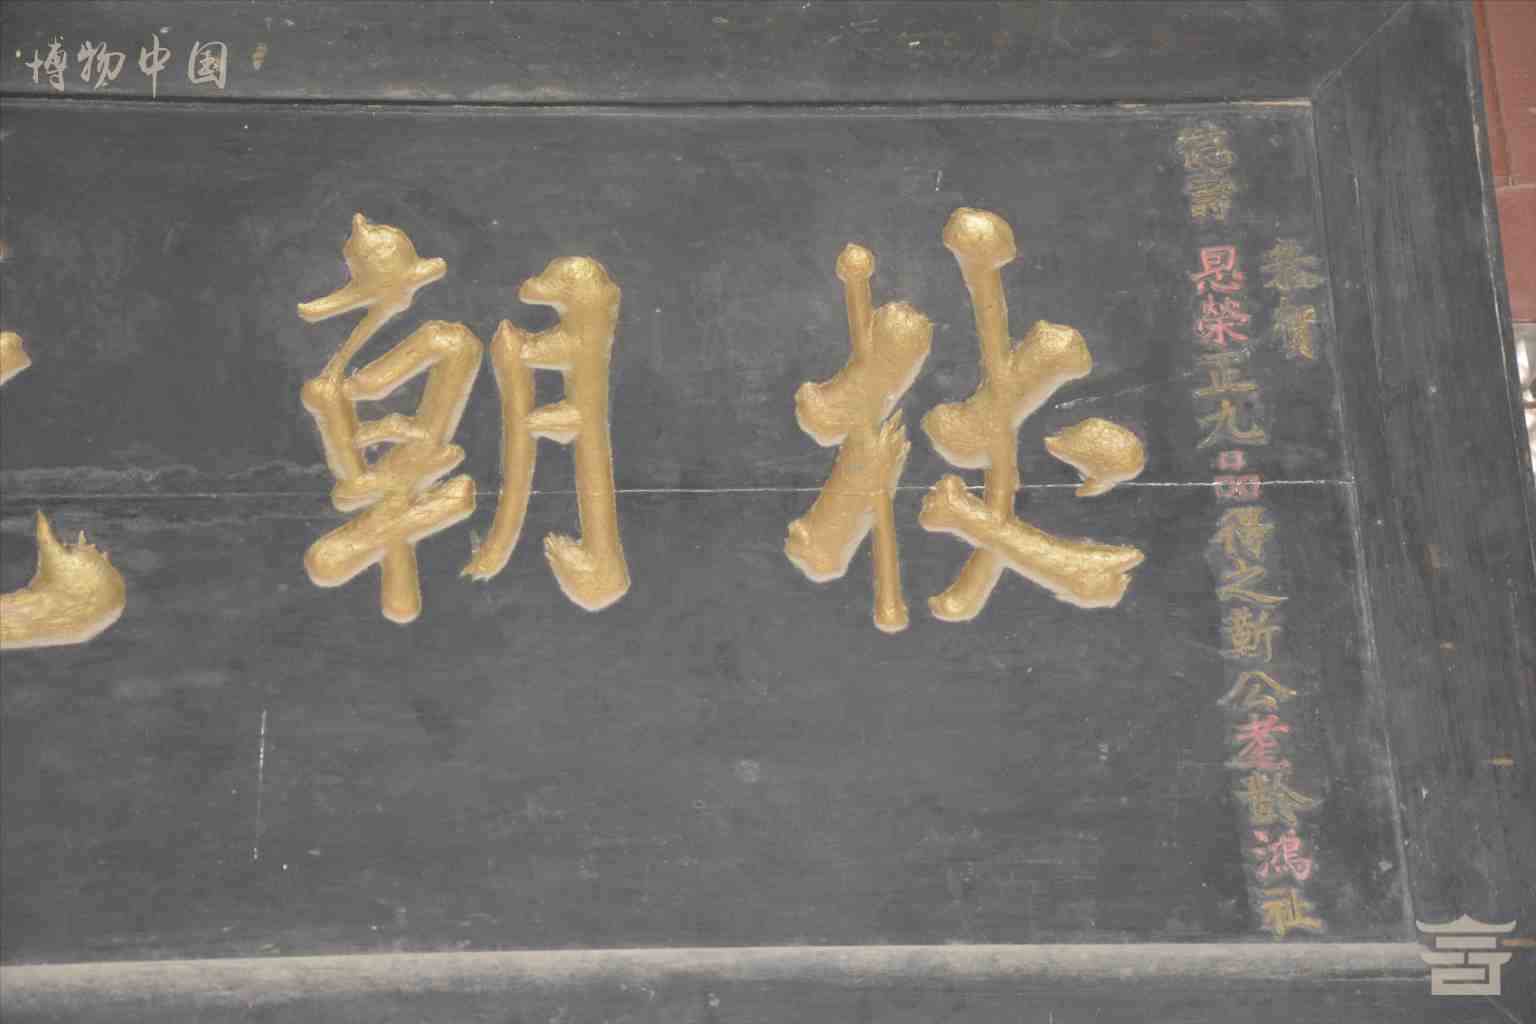 博物中国
恭賀
德壽 恩榮正九品得之靳公耄齡鴻祉
杖朝